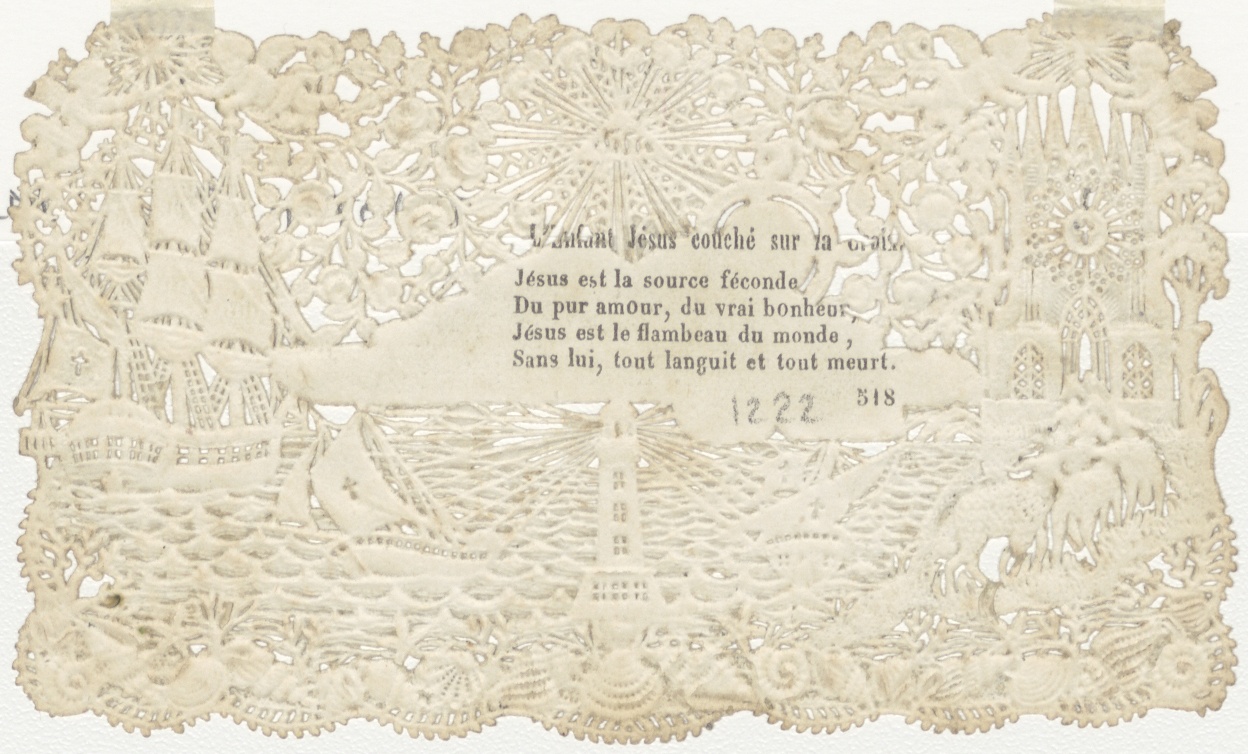 L'Enfant Jésus couché sur la croix.
Jésus est la source féconde
Du pur amour, du vrai bonheur,
Jésus est le flambeau du monde ,
Sans lui, tout languit et tout meurt.
518
1222